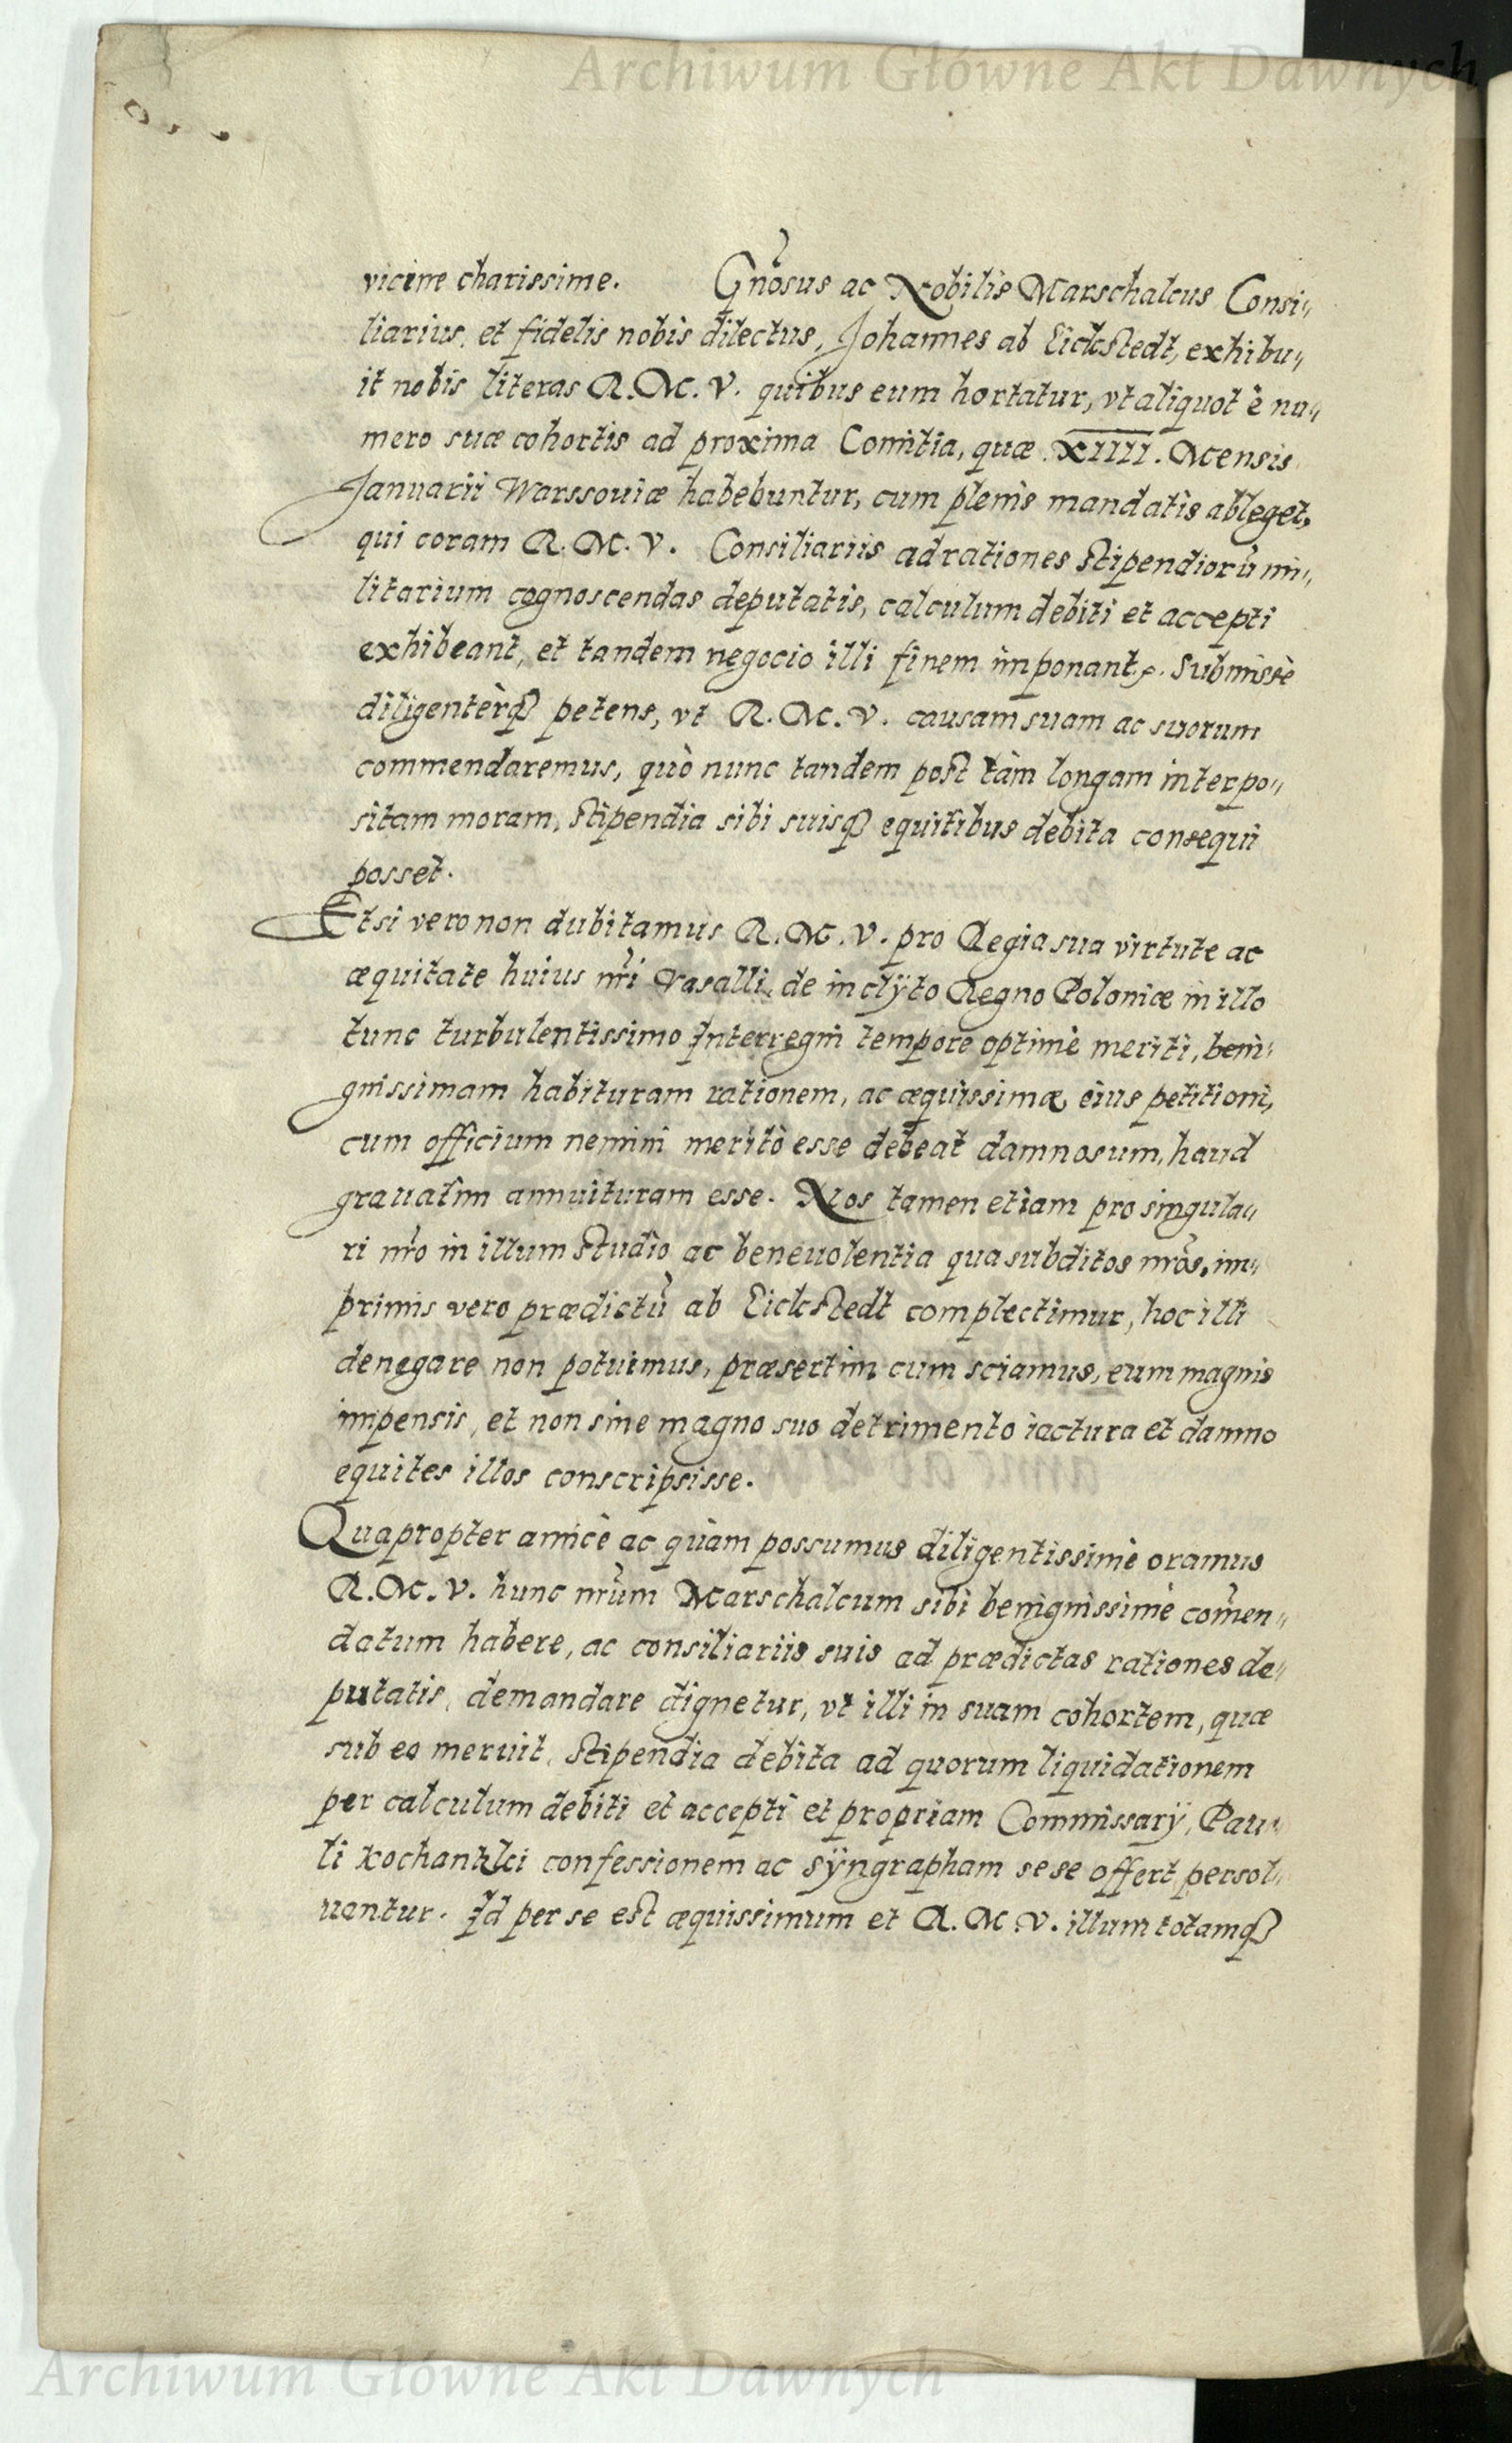 Archiwum Główne Akt Dawnych
vicine charissime. Gnosus ac Nobilis Marschalcus Consi„
liarius, et fidelis nobis dilectus, Johannes ab Eickstedt, exhibu„
it nobis literas R. M. V. quibus eum hortatur, vt aliquot è nu„
mero suæ cohortis ad proxima Comitia, quæ XIIII. Mensis
Januarii Warssouiæ habebuntur, cum plenis mandatis ableget,
qui coram R. M. V. Consiliariis ad rationes stipendiorũ mi„
litarium cognoscendas deputatis, calculum debiti et accepti
exhibeant, et tandem negocio illi finem imponant. Submissè
diligenterq́ petens, vt R. M. V. causam suam ac suorum
commendaremus, quò nunc tandem post tàm longam interpo„
sitam moram, stipendia sibi suisq́ equitibus debita consequi
posset.
Etsi vero non dubitamus R. M. V. pro Regia sua virtute ac
æquitate huius nr̃i Vasalli, de inclÿto Regno Poloniæ in illo
tunc turbulentissimo Interregni tempore optimè meriti, beni„
gnissimam habituram rationem, ac æquissimæ eius petitioni,
cum officium nemini meritò esse debeat damnosum, haud
grauatim annuituram esse. Nos tamen etiam pro singula„
ri nr̃o in illum studio ac beneuolentia qua subditos nr̃os, im„
primis vero prædictũ ab Eickstedt complectimur, hoc illi
denegare non potuimus, præsertim cum sciamus, eum magnis
impensis, et non sine magno suo detrimento iactura et damno
equites illos conscripsisse.
Quapropter amicè ac quàm possumus diligentissimè oramus
R. M. V. hunc nr̃um Marschalcum sibi benignissimè com̃en„
datum habere, ac consiliariis suis ad prædictas rationes de„
putatis, demandare dignetur, vt illi in suam cohortem, quæ
sub eo meruit, stipendia debita ad quorum liquidationem
per calculum debiti et accepti et propriam Commissarÿ, Pau„
li Kochantzki confessionem ac sÿngrapham sese offert, persol„
uantur. Id per se est æquissimum et R. M. V. illum totamq́
Archiwum Główne Akt Dawnych